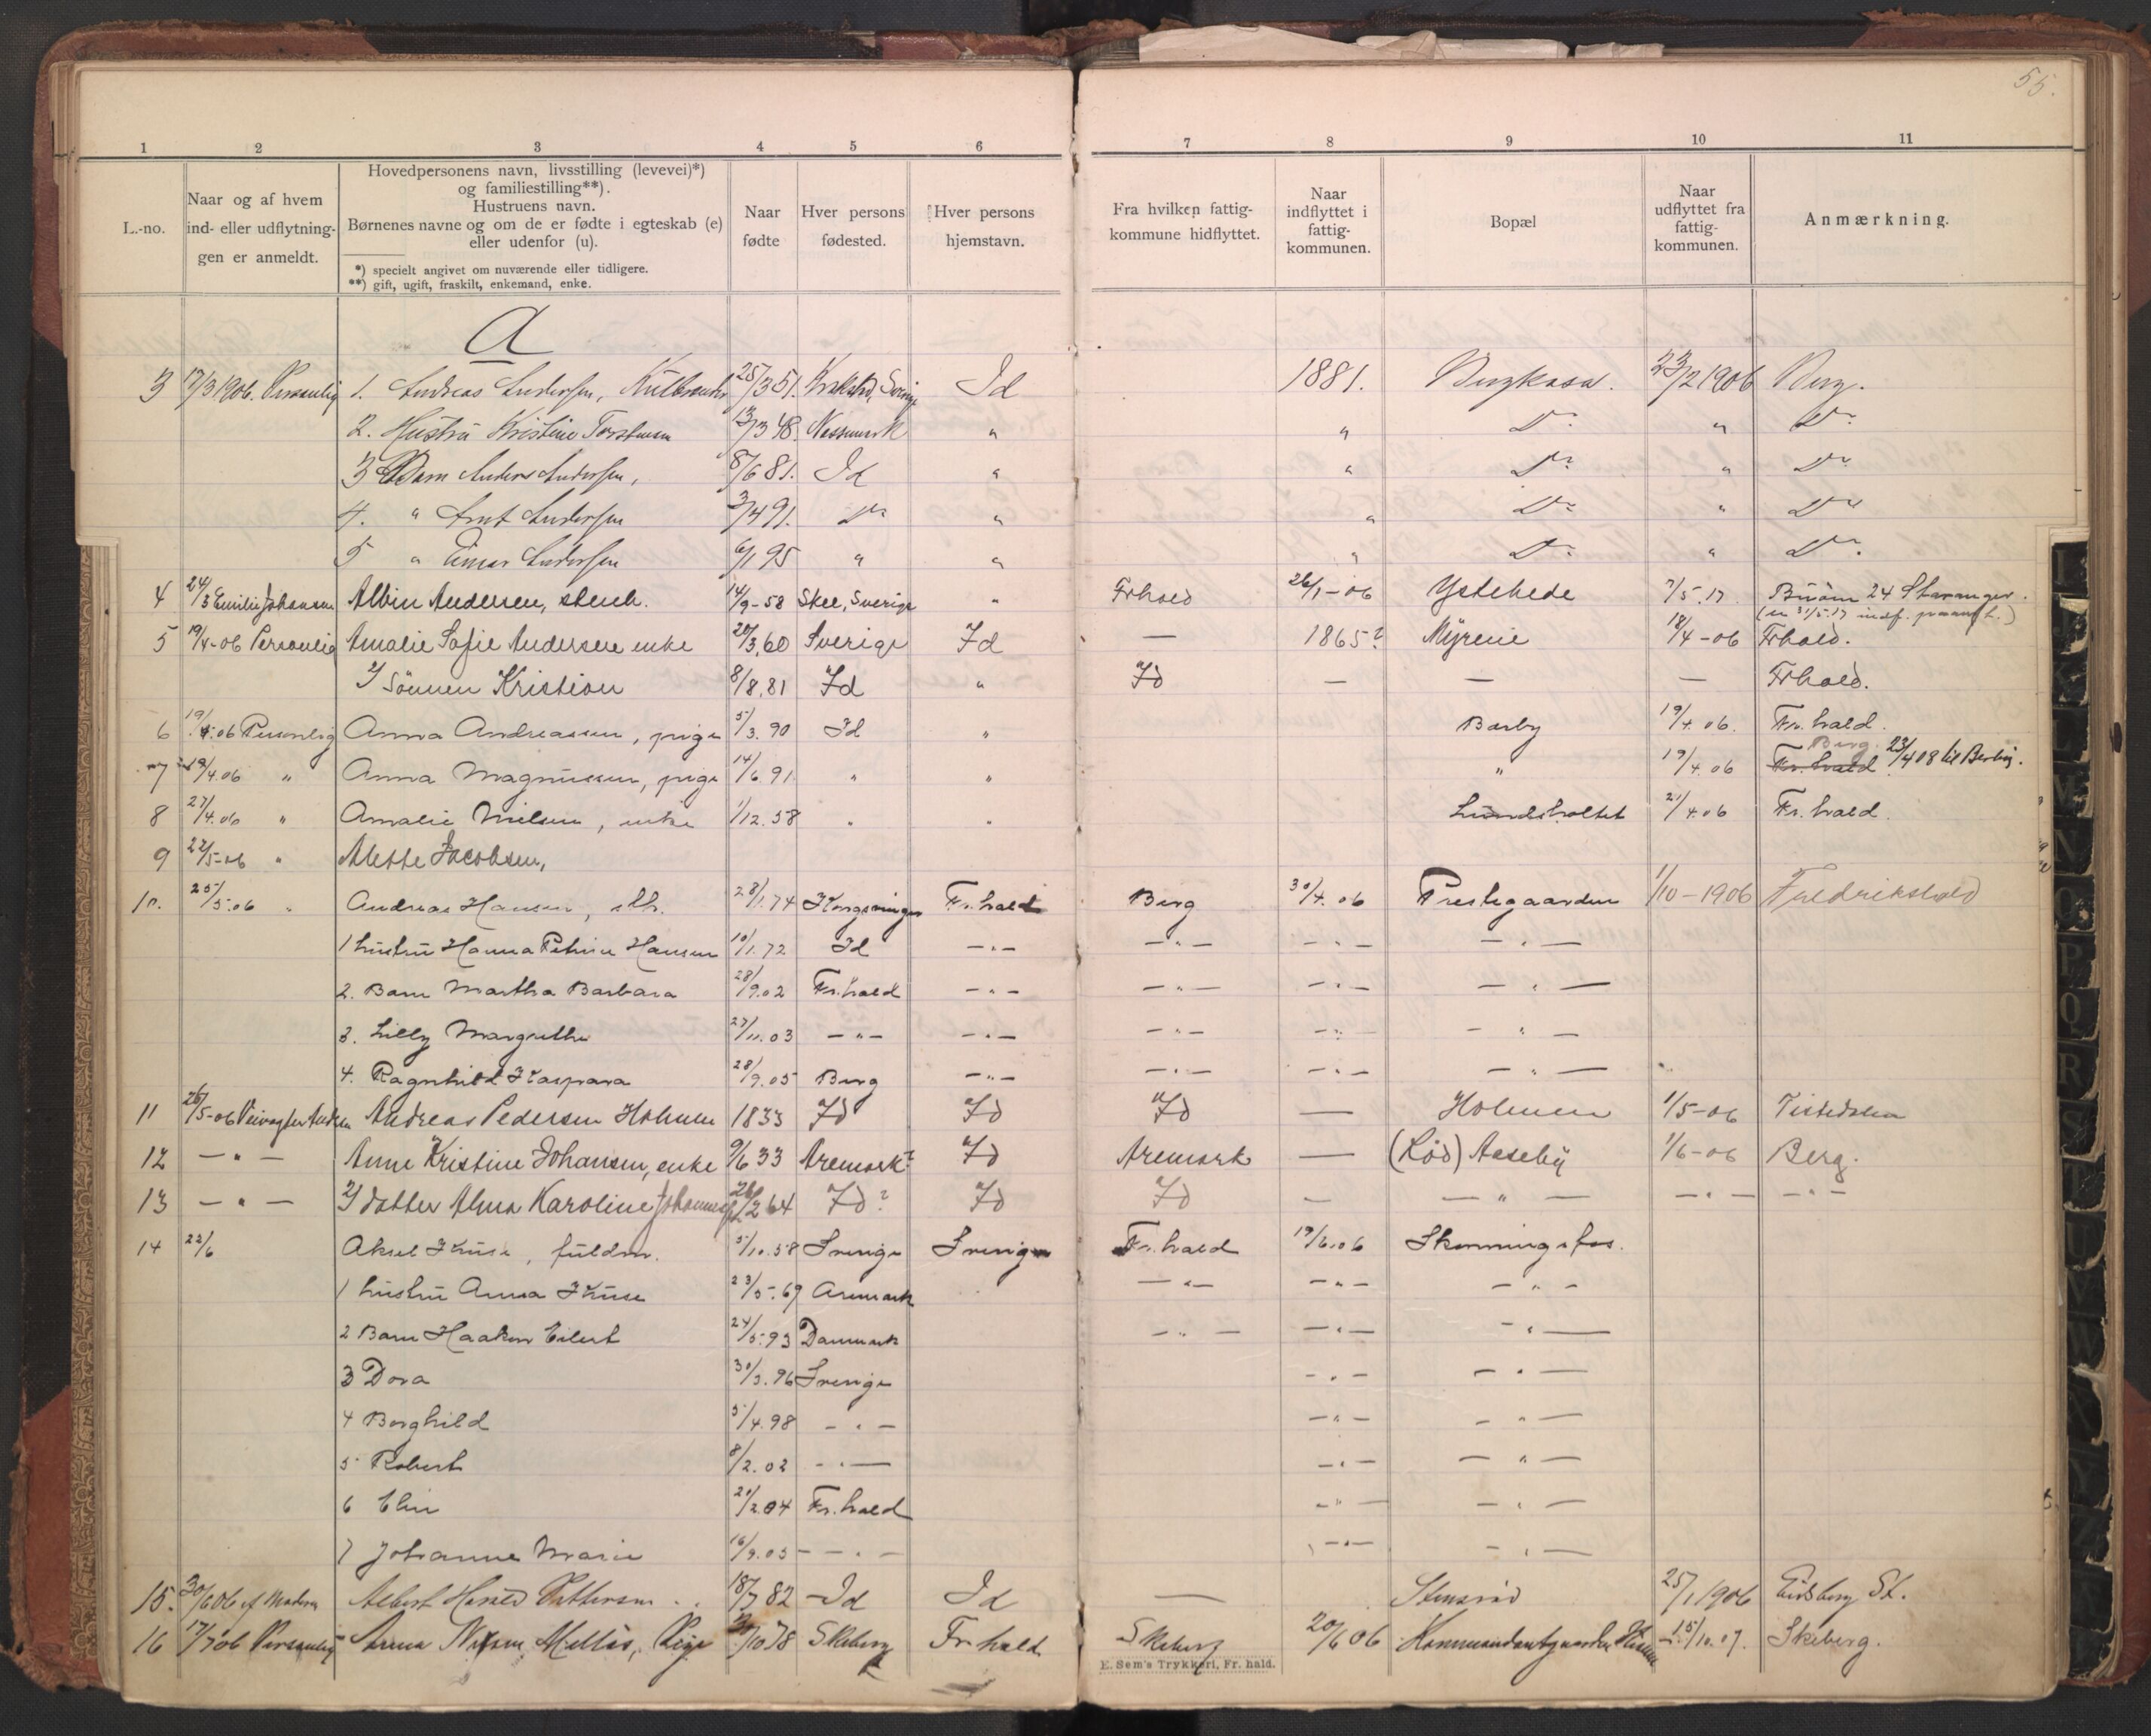 55.
1 2 3 4 5 6 7 8 9 10 11
L.-no.
Naar og af hvem ind- eller udflytningen er anmeldt.
Hovedpersonens navn, livsstilling (levevei)*) og familiestilling**).
Hustruens navn.
Børnenes navne og om de er fødte i egteskab (e) eller udenfor (u).
*) specielt angivet om nuværende eller tidligere.
**) gift, ugift, fraskilt, enkemand, enke.
Naar fødte
Hver persons fødested.
Hver persons hjemstavn.
Fra hvilken fattigkommune hidflyttet.
Naar indflyttet i fattigkommunen.
Bopæl
Naar udflyttet fra fattigkommunen.
Anmærkning.
A
3 17/3 1906. Personlig 1. Andreas Andersen, 25/3 51. Id 1881. 23/2 1906 Berg.
2. Hustru Kristine 13/3 48. " " D° " D°
3 Barn Anders Andersen, 8/6 81. Id " " D° " D°
4. " Arnt Andersen 3/4 91. D° " " D° " D°
5 " Einar Andersen 6/1 95 " " " D° " D°.
4 24/3 Emilie Johansen Albin Andersen, stenh. 14/9-58 Skee, Sverige " Frhald 26/1-06 Ystehede 7/5.17 24 Stavanger.
5 19/4-06 Personlig Amalie Sofie Andersen enke 20/3,60 Sverige Id — 1865? Myrene 18/4-06 Frhald.
Sønnen Kristian 8/8,81 Id " Id — — — Frhald.
6 19/4.06 Personlig Anna Andreassen, pige 5/3.90 Id " Barby 19/4.06. Fr.hald.
7 19/4.06 " Anna Magnussen, pige 14/6 91. " " " 19/4.06 Fr.hald Berg 23/4 08 til Berby.
8 27/4.06 " Amalie Nilsen, enke 1/12.58 " " Lundsholtet 21/4.06 Fr.hald.
9 22/5-06 " Alette Jacobsen,
10. 25/5.06 " Andreas Hansen, 28/1.74 Kongsvinger Fr.hald Berg 30/4.06 Prestegaarden 1/10-1906 Fredrikshald
1 hustru Hanna Petrine Hansen 10/1.72 Id —"— —"— —"— —"—
2. Barn Martha Barbara 28/9.02 Fr.hald —"— —"— —"— —"—
3. Lilly Margrethe 27/11.03 —"— —"— —"— —"— —"—
4. Ragnhild Kaspara 28/9.05 Berg —"— —"— —"— —"—
11 26/5-06 Andreas Pedersen Holmen 1833 Id Id Id — Holmen 1/5-06 Tistedalen
12 —"— Anne Kristine Johansen, enke 9/6 33 Aremark? Id Aremark — (Lød) Aaseby 1/6-06 Berg.
13 —"— datter Alma Karoline 26/2 64 Id? Id Id — —"— —"— —"—
14 22/6 Aksel Kruse, fuldm. 5/10.58 Sverige Sverige Fr.hald 19/6.06 Skonningsfos.
1 hustru Anna Kruse 23/5.69 Aremark —"— —"— —"—
2 Barn Haakon Eilert 24/5.93 Danmark —"— —"— —"—
3 Dora 30/3.96 Sverige —"— —"—
4 Borghild 5/4.98 —"— —"— —"—
5 Robert 8/2.02 —"— —"— —"—
6 Elin 20/2.04 Fr.hald —"— —"—
7 Johanne Marie 16/9.05 —"— —"— —"—
15. 30/6 06 af Moderen Albert Harald Pettersen 18/7 82 Id Id — Stensrød 25/1 1906 Eidsberg St.
16 17/7 06 Personlig Anna Pige 78 Skeberg Fr.hald Skeberg 20/6 06 15/10.07. Skeberg.
E. Sem's Trykkeri, Fr. hald.